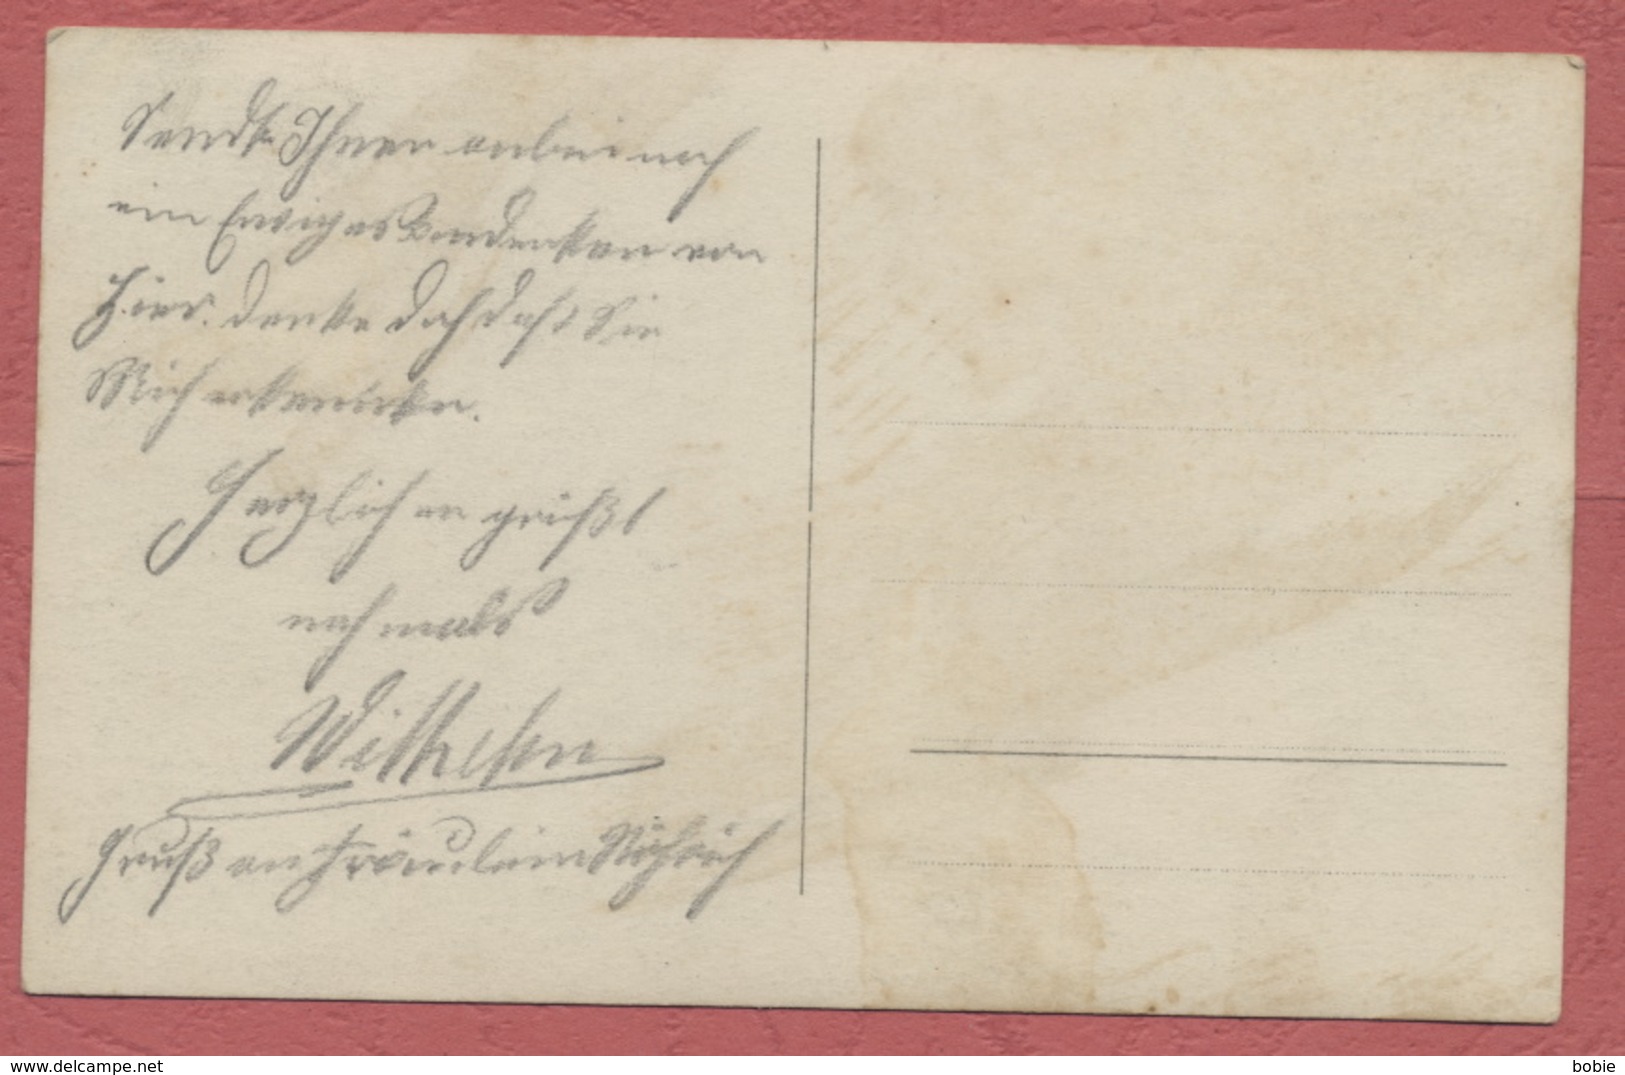 Sende Ihnen anbei noch
ein Ewiges Andenken von
Hier. denke doch daß Sie
Mich erkennen.
Herzlichen grüßt
nochmals
Wilhelm
Gruß an Fräulein
bobie
www.delcampe.net